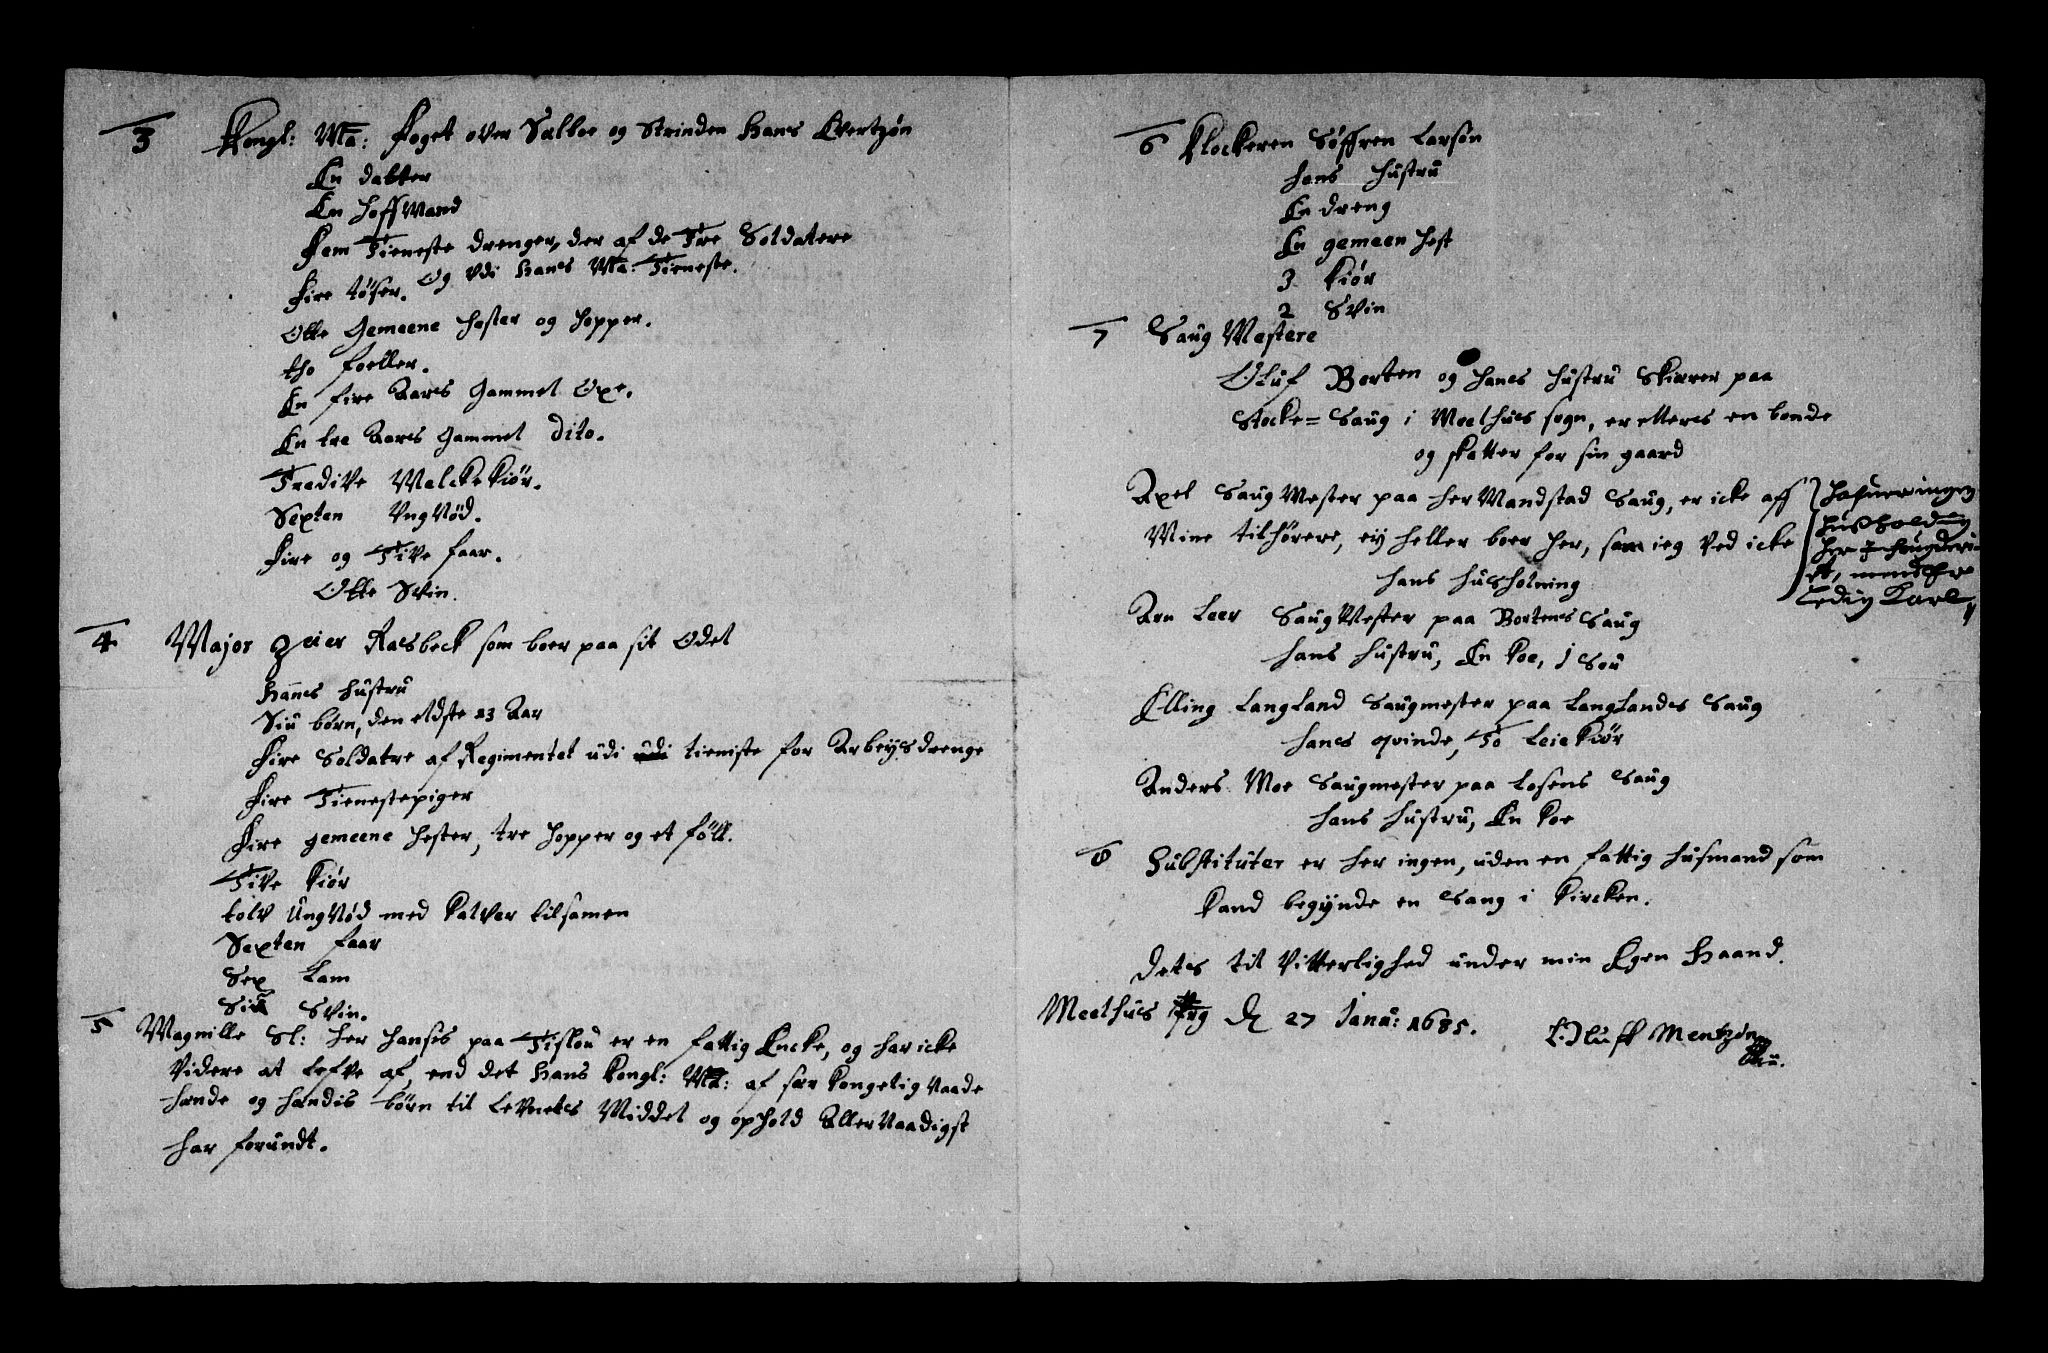 3 Kongl: Ma: Foget over Sælboe og Strinden Hans Evertzøn
En datter
En Hoffmand
Fem Tieneste drenger, der af de Tre Soldatere
Og udi Hans Ma: Tieneste.
Fire tøser.
Otte Gemeene Hester og Hopper.
tho foeller.
En fire Aars Gammel Oxe.
En tre Aars Gammel Dito.
Tredive Malckekiør.
Sexten Ungnød.
Fire og Tive faar.
Otte Svin.
4 Major Zeier Rasbeck som boer paa sit Odel
Hanes Hustru
Siu børn, den eldste 13 Aar
Fire Soldatre af Regimentet udi udi tieniste for Arbeysdrenge
Fire Tienestepiger
Fire gemeene Hester, tre Hopper og et føll.
Tive Kiør
tolv Ungnød med Kalver tilsamen
Sexten faar
Sex Lam
Siu Svin.
5 Magnille Sl: Her Hanses paa Tislou er en fattig Encke, og har icke
Videre at lefve af, end det Hans Kongl: Ma: af sær Kongelig Naade
Hende og Hendis børn til Levnets Middel og ophold Aller Naadigst
har forundt.
6 Klockeren Søffren Larsøn
hans Hustru
En dreng
En gemeen Hest
3 Kiør
2 Svin
7 Saug Mestere
Oluf Borten og Hanes Hustru Skierer paa
Stocke= Saug i Meelhus sogn, er ellers en bonde
og skatter for sin gaard
Axel Saug Mester paa her Mandstad Saug, er icke aff
Mine tilhørere, ey heller boer her, som ieg ved icke
hans Husholning
Hafuer ingen
Hußholding
her
Ledig Karl
Arn Leer Saug Mester paa Bortens Saug
hans Hustru, En Koe, 1 Sou
Elling Langland Saugmester paa Langlandes Saug
hanes qvinde, To Leie Kiør
Anders Moe Saugmester paa Losens Saug
hans Hustru, En Koe
8 Substituter er her ingen, uden en fattig Husmand som
Kand begynde en Sang i Kircken.
Dets til Vitterlighed under min Egen Haand.
Meelhus Prg d 27 Janu: 1685. Oluff Mentzøn